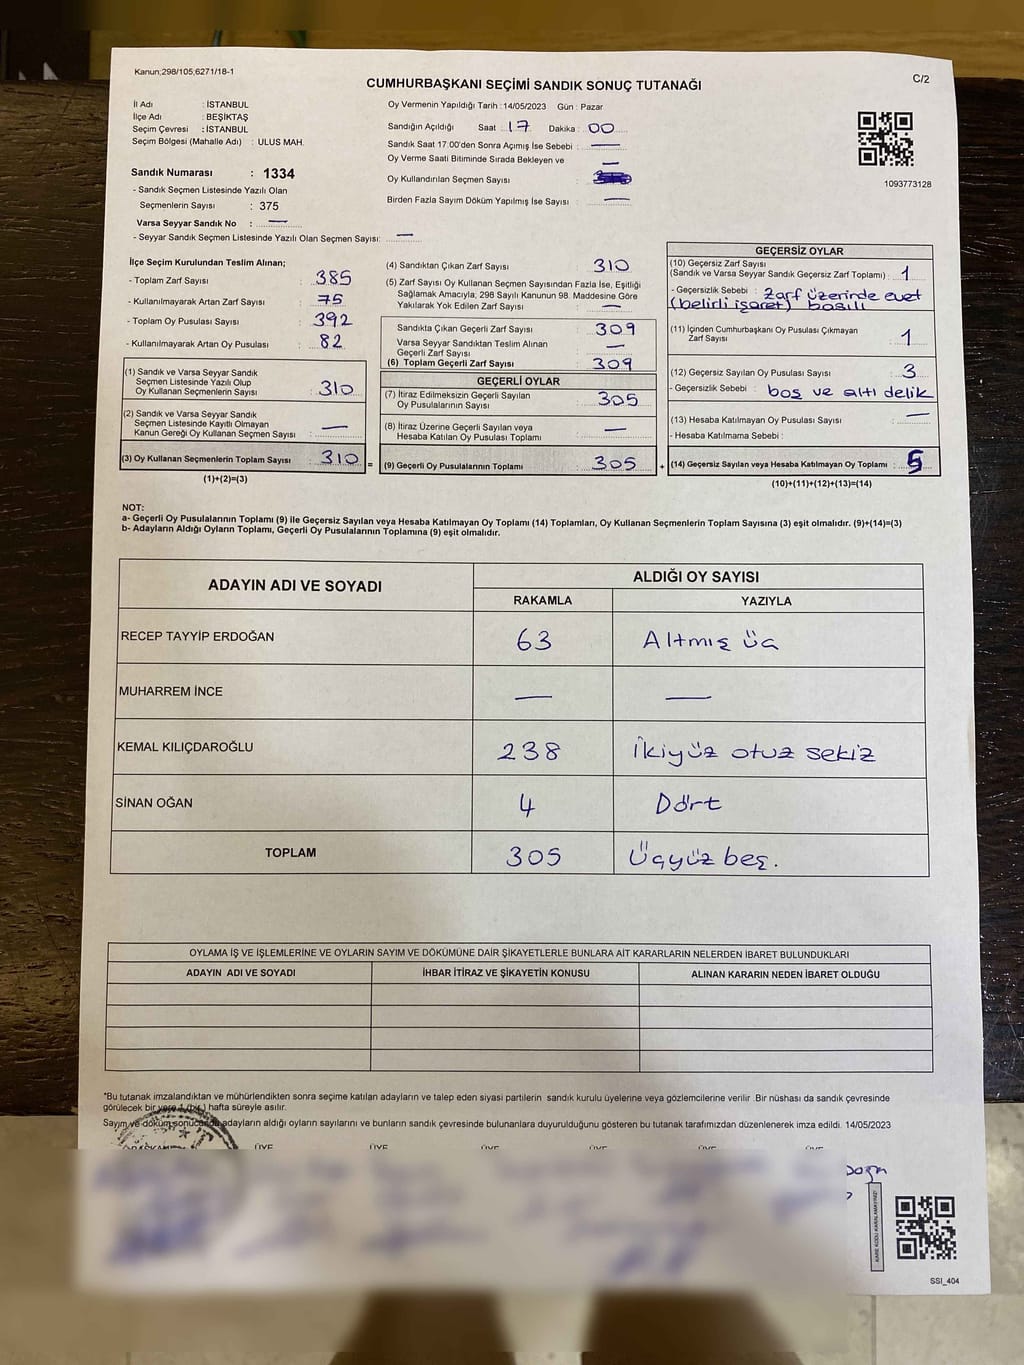 Kanun;298/105,6271/18-1
C/2
CUMHURBAŞKANI SEÇİMİ SANDIK SONUÇ TUTANAĞI
İl Adı : İSTANBUL
İlçe Adı : BEŞİKTAŞ
Seçim Çevresi : İSTANBUL
Seçim Bölgesi (Mahalle Adı) : ULUS MAH.
Oy Vermenin Yapıldığı Tarih : 14/05/2023 Gün : Pazar
Sandığın Açıldığı Saat : 17 Dakika : 00
Sandık Saat 17:00'den Sonra Açımış İse Sebebi : —
Oy Verme Saati Bitiminde Sırada Bekleyen ve —
Oy Kullandırılan Seçmen Sayısı :
Birden Fazla Sayım Döküm Yapılmış İse Sayısı : —
1093773128
Sandık Numarası : 1334
- Sandık Seçmen Listesinde Yazılı Olan
Seçmenlerin Sayısı : 375
Varsa Seyyar Sandık No : —
- Seyyar Sandık Seçmen Listesinde Yazılı Olan Seçmen Sayısı: —
İlçe Seçim Kurulundan Teslim Alınan;
- Toplam Zarf Sayısı : 385
- Kullanılmayarak Artan Zarf Sayısı : 75
- Toplam Oy Pusulası Sayısı : 392
- Kullanılmayarak Artan Oy Pusulası : 82
(1) Sandık ve Varsa Seyyar Sandık
Seçmen Listesinde Yazılı Olup
Oy Kullanan Seçmenlerin Sayısı : 310
(2) Sandık ve Varsa Seyyar Sandık
Seçmen Listesinde Kayıtlı Olmayan
Kanun Gereği Oy Kullanan Seçmen Sayısı : —
(3) Oy Kullanan Seçmenlerin Toplam Sayısı : 310
(1)+(2)=(3)
(4) Sandıktan Çıkan Zarf Sayısı : 310
(5) Zarf Sayısı Oy Kullanan Seçmen Sayısından Fazla İse, Eşitliği
Sağlamak Amacıyla, 298 Sayılı Kanunun 98. Maddesine Göre
Yakılarak Yok Edilen Zarf Sayısı : —
Sandıkta Çıkan Geçerli Zarf Sayısı : 309
Varsa Seyyar Sandıktan Teslim Alınan
Geçerli Zarf Sayısı : —
(6) Toplam Geçerli Zarf Sayısı : 309
GEÇERLİ OYLAR
(7) İtiraz Edilmeksizin Geçerli Sayılan
Oy Pusulalarının Sayısı : 305
(8) İtiraz Üzerine Geçerli Sayılan veya
Hesaba Katılan Oy Pusulası Toplamı : —
= (9) Geçerli Oy Pusulalarının Toplamı : 305
GEÇERSİZ OYLAR
(10) Geçersiz Zarf Sayısı
(Sandık ve Varsa Seyyar Sandık Geçersiz Zarf Toplamı) : 1
- Geçersizlik Sebebi : Zarf üzerinde evet
(belirli işaret) basılı
(11) İçinden Cumhurbaşkanı Oy Pusulası Çıkmayan
Zarf Sayısı : 1
(12) Geçersiz Sayılan Oy Pusulası Sayısı : 3
- Geçersizlik Sebebi : boş ve altı delik
(13) Hesaba Katılmayan Oy Pusulası Sayısı : —
- Hesaba Katılmama Sebebi :
+ (14) Geçersiz Sayılan veya Hesaba Katılmayan Oy Toplamı : 5
(10)+(11)+(12)+(13)=(14)
NOT:
a- Geçerli Oy Pusulalarının Toplamı (9) ile Geçersiz Sayılan veya Hesaba Katılmayan Oy Toplamı (14) Toplamları, Oy Kullanan Seçmenlerin Toplam Sayısına (3) eşit olmalıdır. (9)+(14)=(3)
b- Adayların Aldığı Oyların Toplamı, Geçerli Oy Pusulalarının Toplamına (9) eşit olmalıdır.
ADAYIN ADI VE SOYADI
ALDIĞI OY SAYISI
RAKAMLA YAZIYLA
RECEP TAYYİP ERDOĞAN 63 Altmış üç
MUHARREM İNCE — —
KEMAL KILIÇDAROĞLU 238 İkiyüz otuz sekiz
SİNAN OĞAN 4 Dört
TOPLAM 305 Üçyüz beş.
OYLAMA İŞ VE İŞLEMLERİNE VE OYLARIN SAYIM VE DÖKÜMÜNE DAİR ŞİKAYETLERLE BUNLARA AİT KARARLARIN NELERDEN İBARET BULUNDUKLARI
ADAYIN ADI VE SOYADI İHBAR İTİRAZ VE ŞİKAYETİN KONUSU ALINAN KARARIN NEDEN İBARET OLDUĞU
*Bu tutanak imzalandıktan ve mühürlendikten sonra seçime katılan adayların ve talep eden siyasi partilerin sandık kurulu üyelerine veya gözlemcilerine verilir .Bir nüshası da sandık çevresinde
görülecek bir yere 1 (bir) hafta süreyle asılır.
Sayım ve döküm sonucunda adayların aldığı oyların sayılarını ve bunların sandık çevresinde bulunanlara duyurulduğunu gösteren bu tutanak tarafımızdan düzenlenerek imza edildi. 14/05/2023
BAŞKAN ÜYE ÜYE ÜYE ÜYE ÜYE ÜYE
KARE KODU KARALAMAYINIZ!
SSI_404